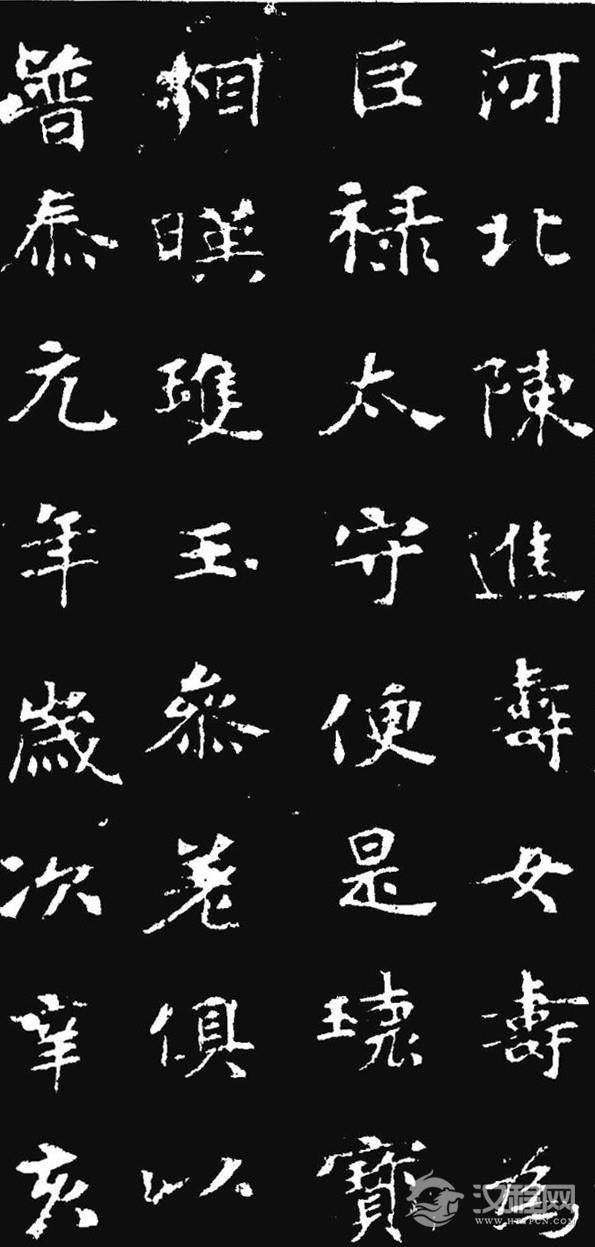 河北陳進壽女壽為
巨禄太守便是瓌寶
相暎瓊玉叅差俱以
普泰元年歲次辛亥
汉程网
WWW.HTTPCN.COM